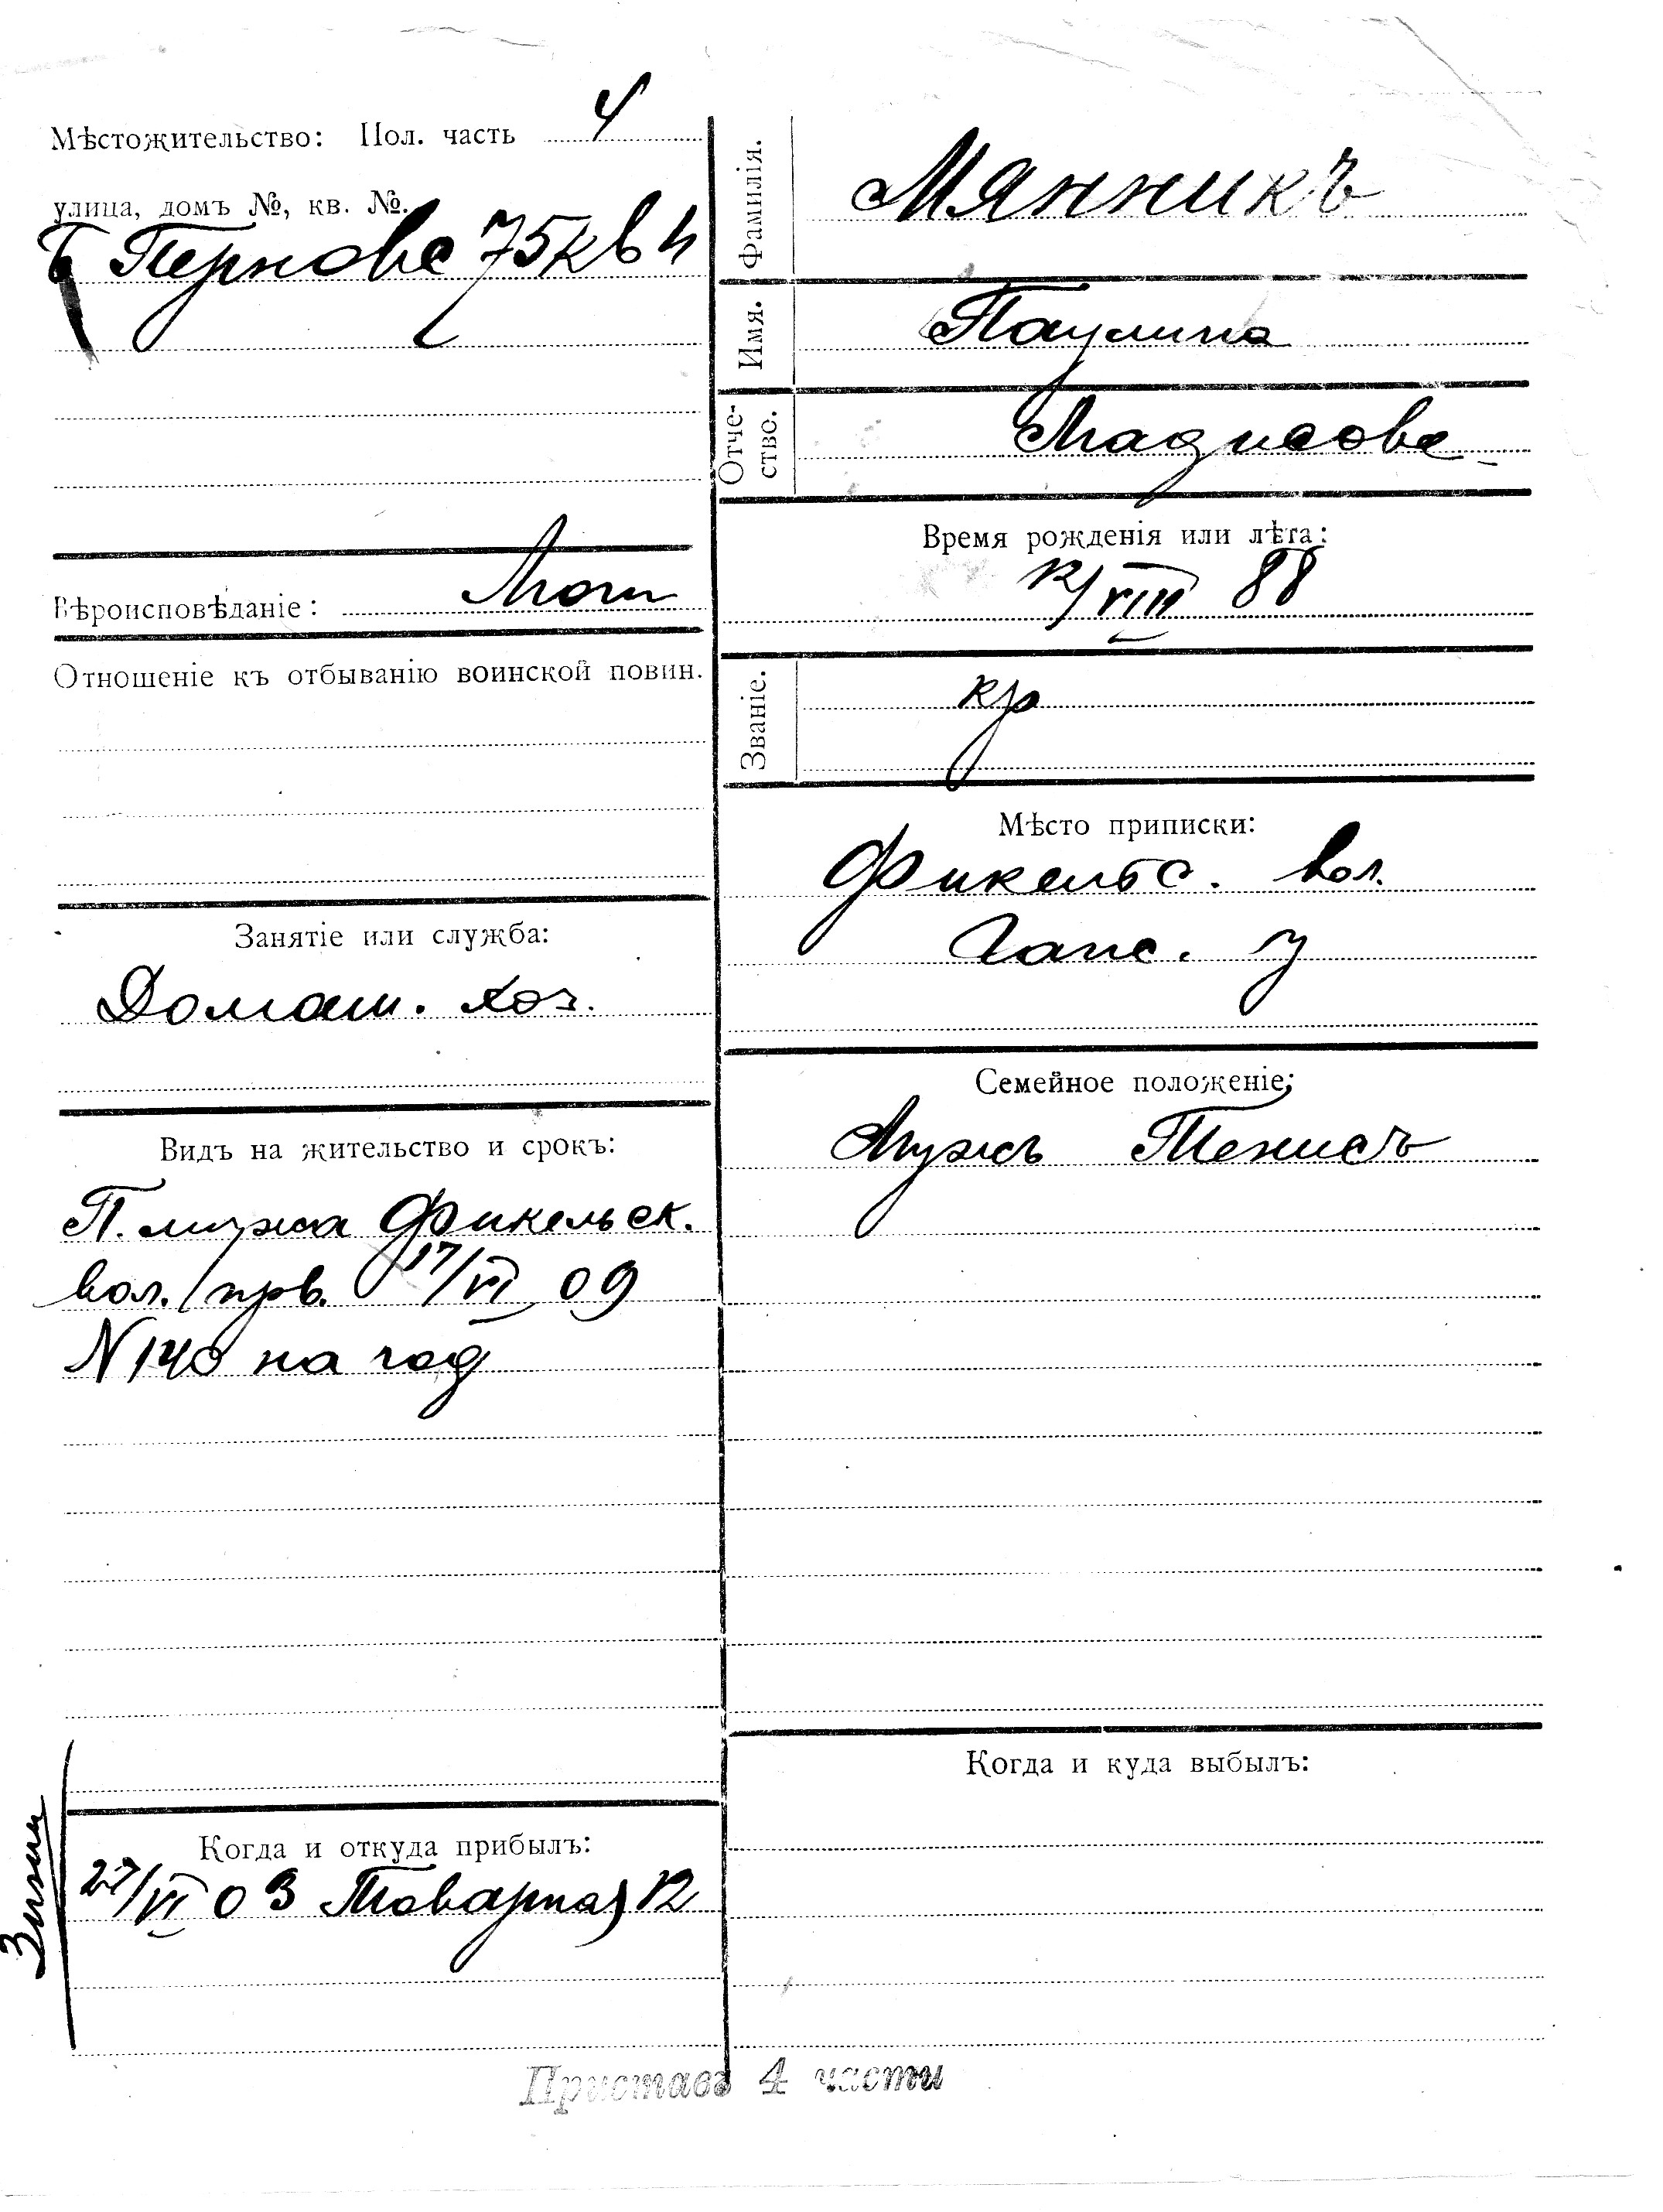 Мѣстожительство: Пол. часть 4
улица, домъ №, кв. №.
Б Пернове 75 кв 4
Вѣроисповѣданіе: Лют
Отношеніе къ отбыванію воинской повин.
Занятіе или служба:
Домаш. хоз.
Видъ на жительство и срокъ:
П. мужа Фикельск.
вол. прв. 17/VI 09
N 140 на год
Когда и откуда прибылъ:
22/VI 03 Товарная 12
Фамилія. Мянникъ
Имя. Паулина
Отче-
ство. Мадисове
Время рожденія или лѣта:
12/VIII 88
Званіе. кр
Мѣсто приписки:
Фикельс. вол.
Гапс. у
Семейное положеніе;
Мужъ Тенисъ
Когда и куда выбылъ:
Приставъ 4 части